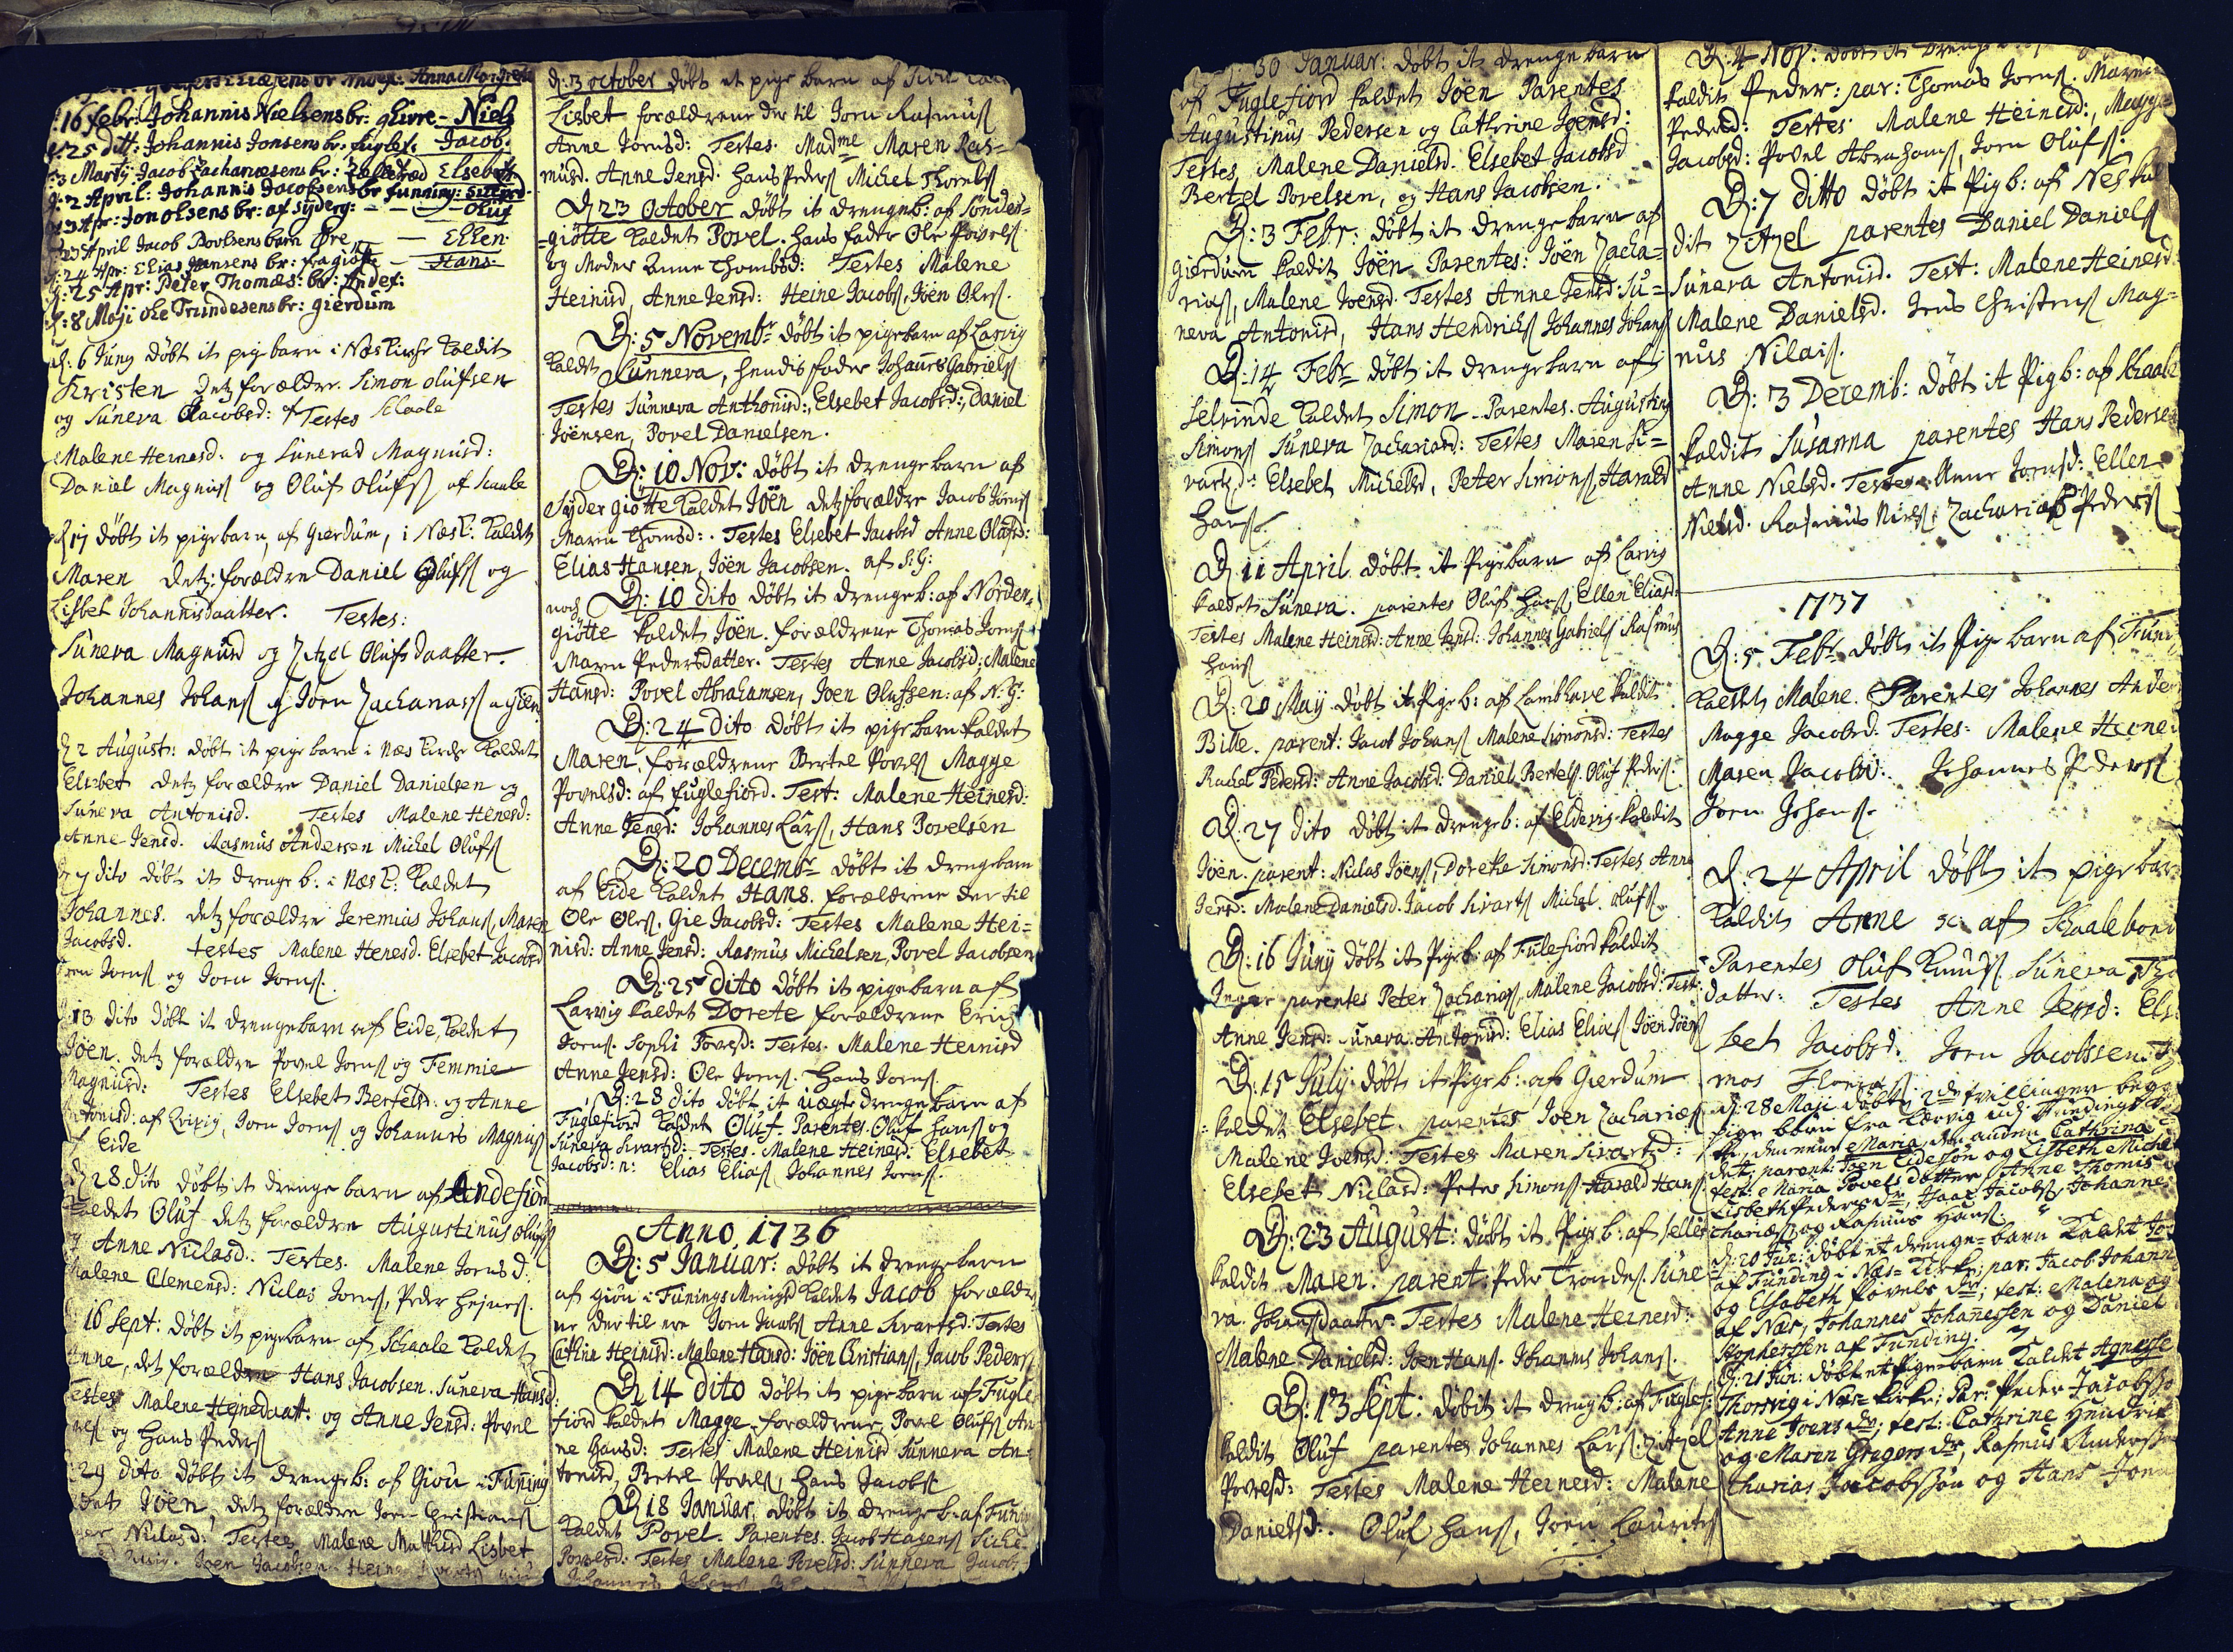 Anna Margrete
16 febr: Johannis Nielsens br: glivre - Niels
25 ditt: Johannis Jonsens br: fuglef. Jacob.
3 Martij Jacob Zachariæsens br: Elsebeth
2 April: Johannis Jacobsens br funning:
3 Apr: Jon olsens br: af Syderg: - - Oluf
23 April Jacob Povlsens barn Øre — Ellen.
24 Apr: Elias Hansens br: fra giøtte — Hans
25 Apr: Peter Thomas: br: Andef:
8 Maji ole Trundesens br: gierdum
d. 6 Juny døbt it pigebarn i Næs Kirche kaldit
Kirsten detz forældre. Simon olufsen
og Suneva Jacobsd: Testes Schaale
Malene Heinesd. og Sunevad Magnusd:
Daniel Magnuss og Oluf Olufss af Scaale
d 17 døbt it pigebarn, af Gierdum, i Næs K: kaldet
Maren detz forældre Daniel Olufss og
Lisbet Johannisdaatter. Testes:
Suneva Magnusd og Zitzel Olufsdaatter.
Johannes Johanss og Joen Zachariass a gierd
d 2 August: døbt it pigebarn i Næs Kirche kaldet
Elsebet detz forældre Daniel Danielsen og
Suneva Antonisd. Testes Malene Henesd:
Anne Jensd. Rasmus Andersen Michel Olufss
7 dito døbt it drenge b: i Næs K: kaldet
Johannes. detz forældre Jeremias Johanss, Maren
Jacobsd. testes Malene Henesd. Elsebet Jacobsd
Joenss og Joen Joenss.
13 dito døbt it drengebarn af Eide, kaldet
Jöen. detz forældre Povel Joenss og Femmie
Magnusd: Testes Elsebet Bertelsd: og Anne
Antonisd: af Joen Joenss og Johannes Magnuss
af Eide
d 28 dito døbt it drenge barn af Andefiord
kaldet Oluf detz forældre Augustinus Olufss
og Anne Niclasd: Testes. Malene Joensd.
Malene Clemensd: Niclas Joenss, Peder Hejness.
16 Sept: døbt it pigebarn af Schaale kaldet
Anne, det forældre Hans Jacobsen. Suneva Hansd:
Testes Malene Heinesdaatt: og Anne Jensd: Povel
og Hans Pederss
29 dito døbt it drengeb: af Giou i Funing
Jöen, detz forældre Joen Christianss
Niclasd: Testes Malene Mathisd Lisbet
Joen Jacobsen Heine
d: 3 october døbt et pige barn af
Lisbet forældrene der til Joen Rasmuss
Anne Joensd: Testes. Madme Maren Ras=
musd. Anne Jensd: Hans Pederss Michel
D 23 October døbt it drengeb: af Sönder=
=giötte kaldet Povel. hans fader Ole Povelss
og Moder Anne Thombsd: Testes Malene
Heinisd, Anne Jensd: Heine Jacobss, Jöen Olss.
D: 5 Novembr døbt it pigebarn af Larvig
kaldet Sunneva, hendis fader Johannes Gabrielss
Testes Sunneva Anthonisd:, Elsebet Jacobsd:, Daniel
Jöensen, Povel Danielsen.
D: 10 Nov: døbt it drengebarn af
Syder giötte kaldet Jöen detz forældre Jacob Joenss
Maren Thomsd: Testes Elsebet Jacobsd Anne Olufsd:
Elias Hansen, Jöen Jacobsen. af S: G:
noch D: 10 dito döbt it drengeb: af Norder=
giötte kaldet Jöen. forældrene Thomas Joenss
Maren Pedersdatter. Testes Anne Jacobsd: Malene
Hansd: Povel Abrahamsen, Joen Olufssen: af N: G:
D: 24 dito döbt it pigebarn kaldet
Maren, forældrene Bertel Povelss Magge
Povelsd: af fuglefiord. Test: Malene Heinesd:
Anne Jensd: Johannes Larss, Hans Povelsen
D: 20 Decembr døbt it drengebarn
af Eide kaldet Hans. forældrene der til
Ole Olss, Gie Jacobsd: Testes Malene Hei=
nisd: Anne Jensd: Rasmus Michelsen, Povel Jacobsen
D: 25 dito døbt it pigebarn af
Larvig kaldet Dorete forældrene Erich
Joenss. Sophi Povelsd: Testes. Malene Heinisd
Anne Jensd: Ole Joenss. Hans Joenss.
D: 28 dito döbt it uægte drengebarn af
Fuglefiord kaldet Oluf. Parentes. Oluf Hanss og
Suneva Sivartsd: Testes. Malene Heinesd: Elsebet
Jacobsd: n: Elias Eliass Johannes Joenss.
Anno 1736
D: 5 Januar: døbt it drengebarn
af giou i Funings Menigd kaldet Jacob foreldre
ne der til ere Joen Jacobss Anne Sivartsd: Testes
Cathrin Heinisd: Malene Hansd: Jöen Christianss, Jacob Pederss
D 14 dito døbt it pigebarn af Fugle
fiord kaldet Magge. forældrene Povel Olufss An
ne Hansd: Testes Malene Heinisd Sunneva An=
tonisd, Bertel Povelss, Hans Jacobss
D 18 Januar, døbt it drengeb. af Funing
kaldet Povel. Parentes. Jacob
Povelsd: Testes Malene Povelsd: Sunneva Jacobs
30 Januar: döbt it drengebarn
af Fuglefiord kaldet Jöen Parentes
Augustinus Pedersen og Cathrine Joensd:
Testes, Malene Danielsd. Elsebet Jacobsd
Bertel Povelsen, og Hans Jacobsen.
D: 3 Febr: döbt it drengebarn af
Gierdum kaldit Jöen Parentes: Jöen Zacha=
riass, Malene Joensd. Testes Anne Jensd: Su=
neva Antonisd, Hans Hendrichss Johannes Johanss
D: 14 Febr døbt it drengebarn af
Selvinde kaldet Simon. Parentes. Augustin
Simonss Suneva Zachariasd: Testes Maren Si=
vartzd: Elsebet Michelsd, Peter Simonss, Harald
Hanss
D 11 April døbt it Pigebarn af Larvig
kaldet Suneva. parentes Oluf Hanss, Ellen Eliasd:
Testes Malene Heinesd: Anne Jensd: Johannes Gabrielss Rasmus
Hanss
D: 20 May døbt it Pige b: af Lambhave kaldit
Bille. parent: Jacob Johanss Malene Simonsd: Testes
Rachel Pedersd: Anne Jacobsd: Daniel Bertelss. Oluf Pederss.
D: 27 dito døbt it drengeb: af Eldevig kaldit
Jöen. parent: Niclas Jöenss, Doreke Simonsd: Testes Anne
Jensd: Malene Danielsd. Jacob Sivartss Michel. Olufss.
D: 16 Juny döbt it Pigeb: af Fulefiord kaldit
Inger parentes Peter Zachariass, Malene Jacobsd: Test:
Anne Jensd: Suneva Antonisd: Elias Eliass Jöen Jöenss
D: 15 July döbt it Pigeb: af Gierdum
kaldit Elsebet. parentes Joen Zachariæss
Malene Joensd: Testes Maren Sivartzd:
Elsebet Niclasd: Peter Simonss Harald Hanss
D: 23 August: döbt it Pige b: af Selle
kaldit Maren. parent: Peder Trondess. Sune
va. Johansdaatter. Testes Malene Heinesd:
Malene Danielsd: Joen Hanss. Johannes Johanss.
D: 13 Sept: døbit it drengb: af Fuglef:
kaldit Oluf parentes Johannes Larss. Zitzel
Povelsd: Testes Malene Heinesd: Malene
Danielsd: Oluf Hanss, Joen Lauritss
D: 4 Nov: döbt it drenge
kaldit Peder: par: Thomas Joenss. Maren
Pedersd: Testes Malene Heinesd:, Magge
Jacobsd: Povel Abrahamss, Joen Olufss.
D: 7 ditto döbt it Pigb: af Nes kal
dit Zitzel parentes Daniel Danielss
Suneva Antonisd. Test: Malene Heinesd
Malene Danielsd. Jens Christenss Mag=
nus Nilaiss.
D: 3 Decemb: döbt it Pigb: af Schaale
kaldit Susanna parentes Hans Pedersen
Anne Nielsd. Testes Anne Joensd: Ellen
Nielsd. Rasmus Nielss Zacharias Pederss
1737
D: 5 Febr døbt it Pige barn af Fun
kaldit Malene. Parentes Johannes Ander
Magge Jacobsd. Testes: Malene Heine
Maren Jacobsd: Johannes Pederss
Joen Johanss.
D: 24 April døbt it pigebar
kaldit Anne af Schaalebond
Parentes Oluf Knudss. Suneva Tho
datter: Testes Anne Jensd: Els
bet Jacobsd. Joen Jacobssen. T
mos
d: 28 Maji døbt tvillinger begge
pige børn fra Larvig udi Fundings
den eene Maria, den anden Cathrina
parent: Jöen Eideson og Lisbeth Michel
test: Maria Povels datter Anne Thomis
Lisbeth Peders dr, Isaac Jacobss, Johanne
chariæss og Rasmus Hanss.
d: 20 Jun: døbt et drenge=barn kaldt Jo
af Funding i Næs=Kirke; par: Jacob Johann
og Elsabeth Povels dr; test: Malena og
af Næs, Johannes Johannessen og Daniel
af Funding.
d: 21 Jun: døbt et Pige=barn kaldet Agnesse
Thorsvig i Næs=Kirke; Par: Peder Jacobsso
Anne Joens dr; test: Cathrine Hendrik
og Maren Gregers dr, Rasmus Anderss
charias Jacobssøn og Hans Jona